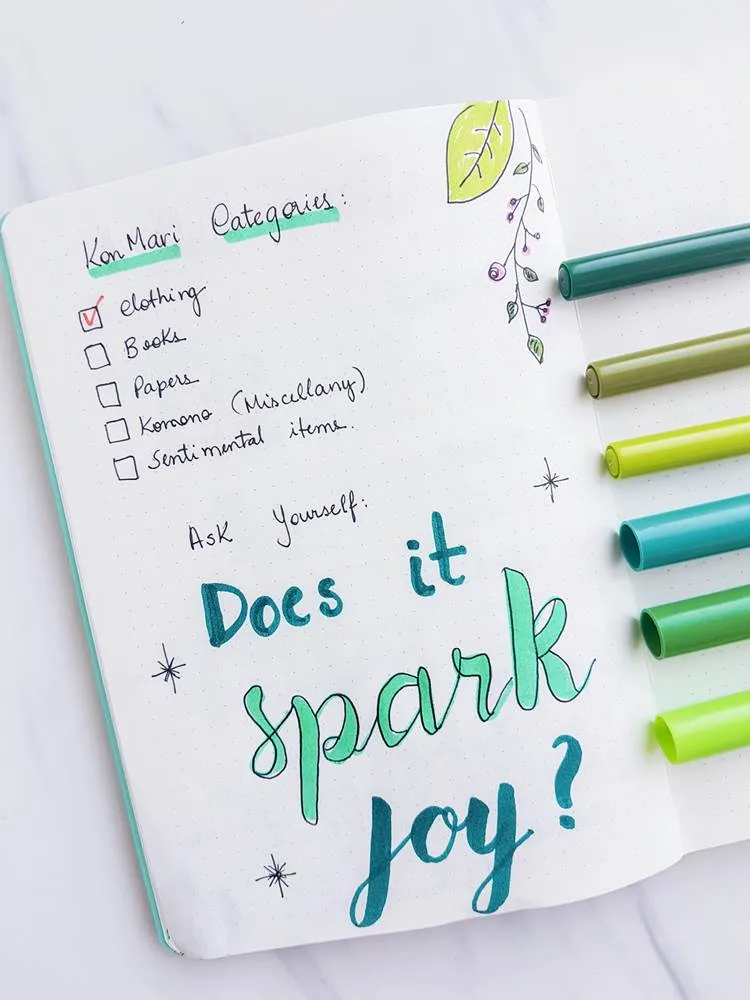 KonMari Categories:
Clothing
Books
Papers
Komono (Miscellany)
Sentimental items.
Ask Yourself:
Does it
spark
joy?